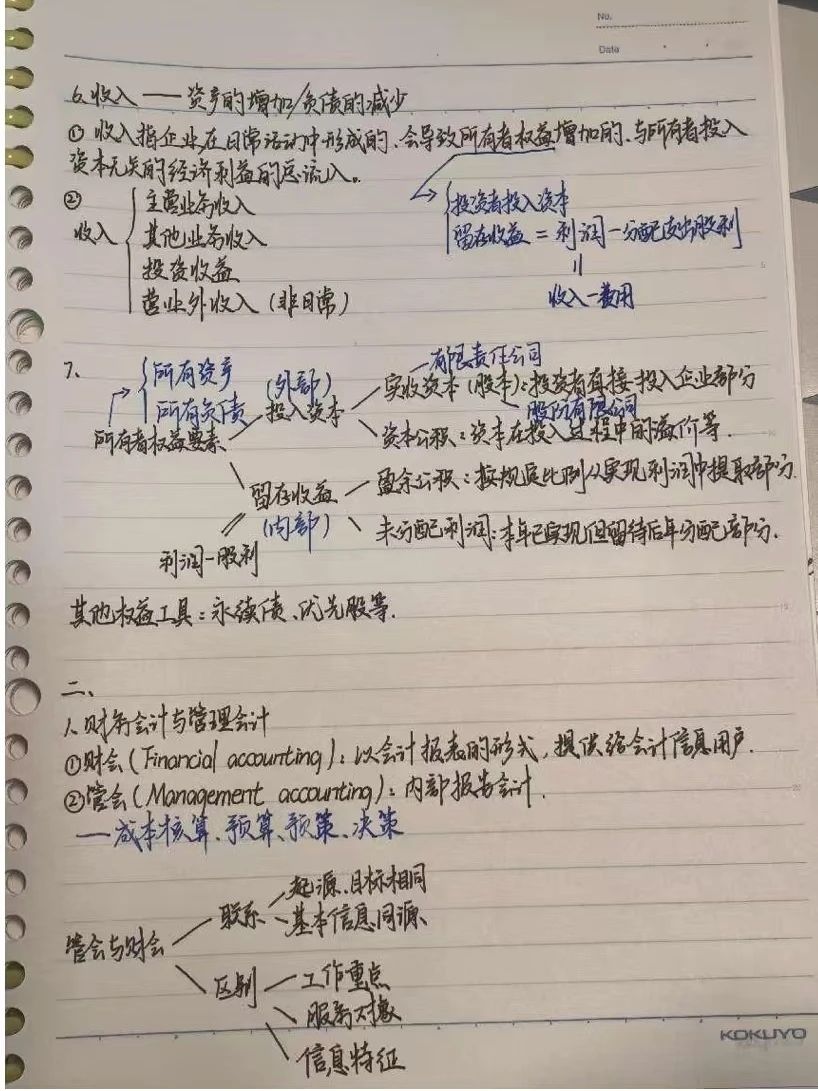 No.
Date
6.收入 —— 资产的增加/负债的减少
① 收入指企业在日常活动中形成的、会导致所有者权益增加的、与所有者投入
资本无关的经济利益的总流入。
②
收入
主营业务收入
其他业务收入
投资收益
营业外收入 (非日常)
投资者投入资本
留存收益 = 利润 — 分配支出股利
=
收入 — 费用
7、
所有资产
所有负债
所有者权益要素
(外部)
投入资本
有限责任公司
实收资本 (股本): 投资者直接投入企业部分
股份有限公司
资本公积: 资本在投入过程中的溢价等.
留存收益
(内部)
盈余公积: 按规定比例从实现利润中提取部分.
未分配利润: 本年已实现但留待后年分配部分.
利润—股利
其他权益工具: 永续债、优先股等.
二、
1.财务会计与管理会计
①财会 (Financial accounting): 以会计报表的形式, 提供给会计信息用户.
②管会 (Management accounting): 内部报告会计.
——成本核算、预算、预策、决策
管会与财会
联系
起源、目标相同
基本信息同源
区别
工作重点
服务对象
信息特征
KOKUYO